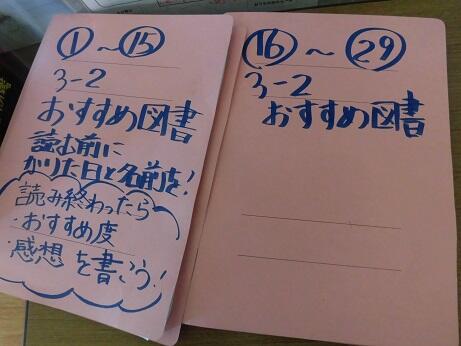 ①～⑮
3-2
おすすめ図書
読む前に
かりた日と名前を!
読み終わったら
・おすすめ度
・感想 を書こう!
⑯～㉙
3-2
おすすめ図書